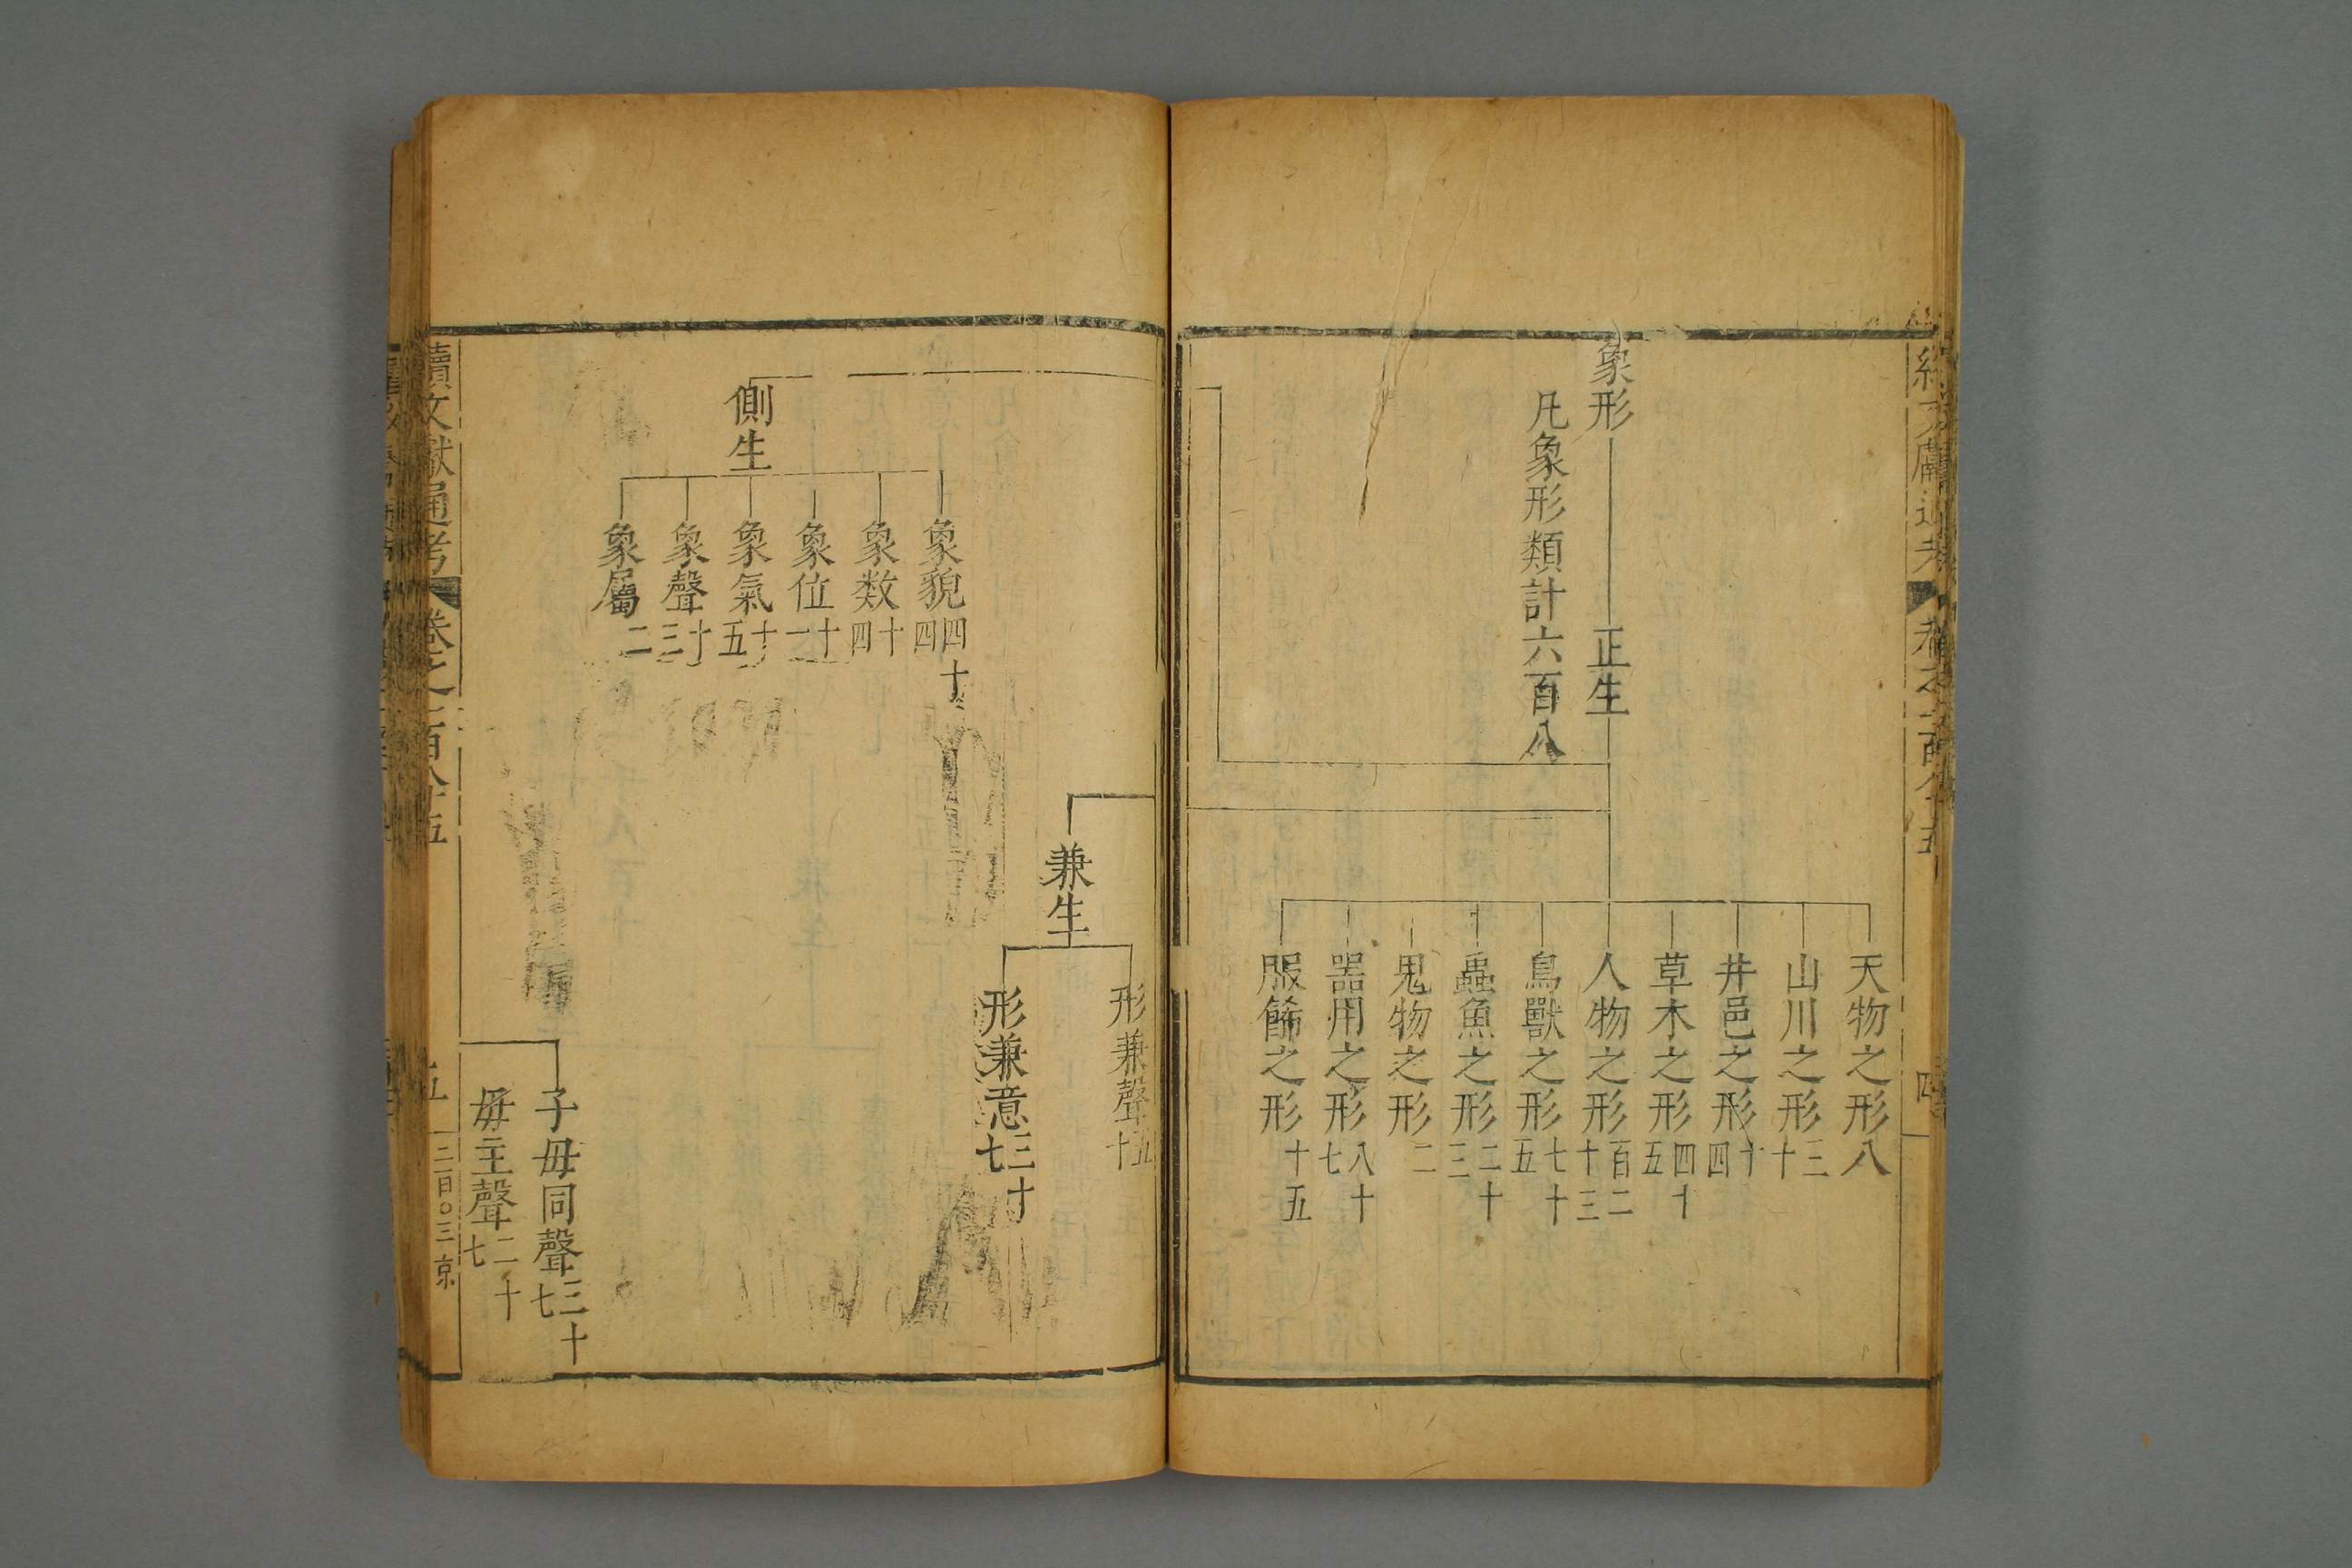 象形
正生
凡象形類計六百八
天物之形八
山川之形三十
井邑之形十四
草木之形四十五
人物之形百二十三
鳥獸之形七十五
蟲魚之形二十三
鬼物之形二
器用之形八十七
服飾之形十五
四
形兼聲五十
兼生
形兼意三十七
側生
象貌四十四
象数十四
象位十一
象氣十五
象聲十三
象屬二
子母同聲三十七
母主聲二十七
續文獻通考
卷之一百八十五
五